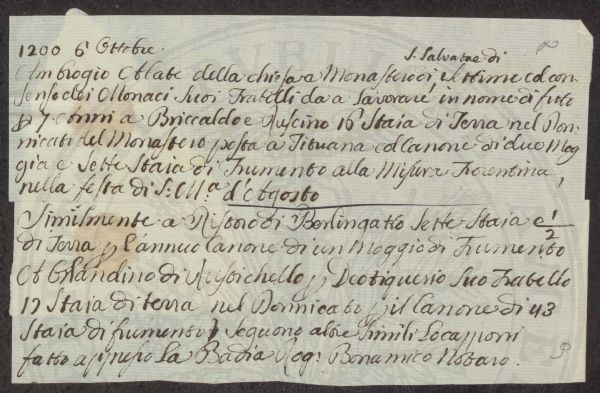 1200 6 Ottobre.
S. Salvatore di
Ambrogio Abbate della chiesa e Monastero di Settimo col con
senso dei Monaci Suoi Fratelli da a Lavorare in nome di fitto
p 7 anni a Briccaldo e Ruscino 16 Staia di Terra nel Do
nicato del Monastero posta a Tituana col Canone di due Mog
gia e Sette Staia di Frumento alla Misura Fiorentina,
nella festa di S. M.a d'Agosto
Similmente a Ristoro di Berlingatto Sette Staia e 1/2
di Terra p l'annuo Canone di un Moggio di Frumento
Et Orlandino di Rustichello p Deotiguerio Suo Fratello
17 Staia di terra nel Donnicato p il Canone di 43
Staia di frumento, Seguono altre Simili Locazioni
fatto appresso La Badia Rog: Bonamico Notaro.